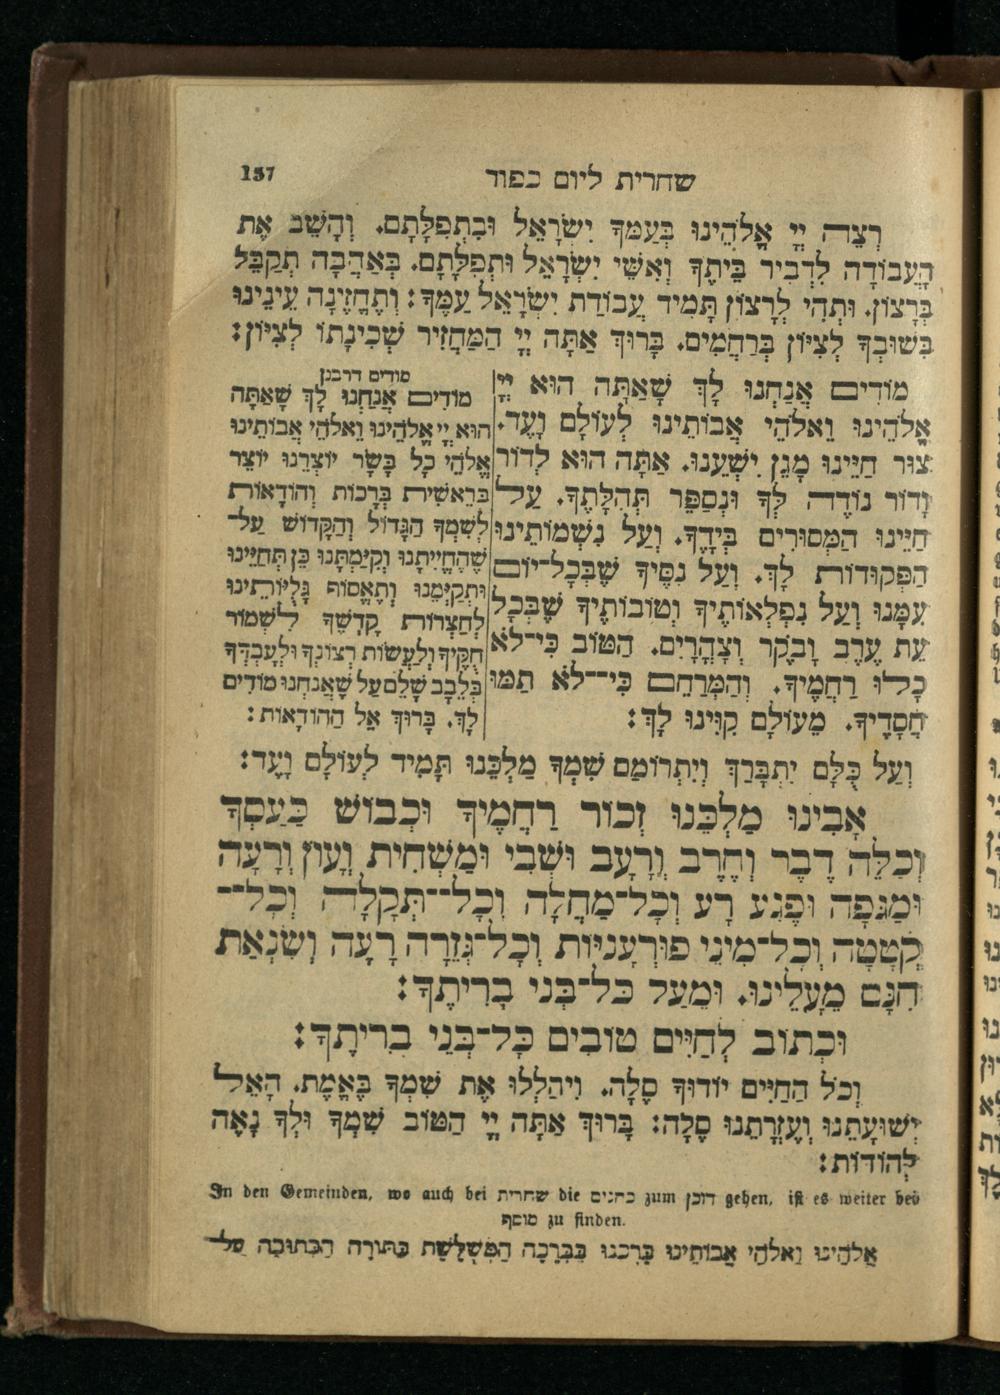 שחרית ליום כפור
157
רְצֵה יְיָ אֱלֹהֵינוּ בְּעַמְּךָ יִשְׂרָאֵל וּבִתְפִלָּתָם. וְהָשֵׁב אֶת
הָעֲבוֹדָה לִדְבִיר בֵּיתֶךָ וְאִשֵּׁי יִשְׂרָאֵל וּתְפִלָּתָם. בְּאַהֲבָה תְקַבֵּל
בְּרָצוֹן. וּתְהִי לְרָצוֹן תָּמִיד עֲבוֹדַת יִשְׂרָאֵל עַמֶּךָ: וְתֶחֱזֶינָה עֵינֵינוּ
בְּשׁוּבְךָ לְצִיּוֹן בְּרַחֲמִים. בָּרוּךְ אַתָּה יְיָ הַמַּחֲזִיר שְׁכִינָתוֹ לְצִיּוֹן:
מוֹדִים אֲנַחְנוּ לָךְ שָׁאַתָּה הוּא יְיָ
אֱלֹהֵינוּ וֵאלֹהֵי אֲבוֹתֵינוּ לְעוֹלָם וָעֶד.
צוּר חַיֵּינוּ מָגֵן יִשְׁעֵנוּ. אַתָּה הוּא לְדוֹר
וָדוֹר נוֹדֶה לְּךָ וּנְסַפֵּר תְּהִלָּתֶךָ. עַל
חַיֵּינוּ הַמְּסוּרִים בְּיָדֶךָ. וְעַל נִשְׁמוֹתֵינוּ
הַפְּקוּדוֹת לָךְ. וְעַל נִסֶּיךָ שֶׁבְּכָל־יוֹם
עִמָּנוּ וְעַל נִפְלְאוֹתֶיךָ וְטוֹבוֹתֶיךָ שֶׁבְּכָל
עֵת עֶרֶב וָבֹקֶר וְצָהֳרָיִם. הַטּוֹב כִּי־לֹא
כָלוּ רַחֲמֶיךָ. וְהַמְּרַחֵם כִּי־לֹא תַמּוּ
חֲסָדֶיךָ. מֵעוֹלָם קִוִּינוּ לָךְ:
מודים דרבנן
מוֹדִים אֲנַחְנוּ לָךְ שָׁאַתָּה
הוּא יְיָ אֱלֹהֵינוּ וֵאלֹהֵי אֲבוֹתֵינוּ
אֱלֹהֵי כָל בָּשָׂר יוֹצְרֵנוּ יוֹצֵר
בְּרֵאשִׁית בְּרָכוֹת וְהוֹדָאוֹת
לְשִׁמְךָ הַגָּדוֹל וְהַקָּדוֹשׁ עַל־
שֶׁהֶחֱיִיתָנוּ וְקִיַּמְתָּנוּ כֵּן תְּחַיֵּינוּ
וּתְקַיְּמֵנוּ וְתֶאֱסוֹף גָּלֻיּוֹתֵינוּ
לְחַצְרוֹת קָדְשֶׁךָ לִשְׁמוֹר
חֻקֶּיךָ וְלַעֲשׂוֹת רְצוֹנְךָ וּלְעָבְדְּךָ
בְּלֵבָב שָׁלֵם עַל שֶׁאֲנַחְנוּ מוֹדִים
לָךְ. בָּרוּךְ אֵל הַהוֹדָאוֹת:
וְעַל כֻּלָּם יִתְבָּרַךְ וְיִתְרוֹמַם שִׁמְךָ מַלְכֵּנוּ תָּמִיד לְעוֹלָם וָעֶד:
אָבִינוּ מַלְכֵּנוּ זְכוֹר רַחֲמֶיךָ וּכְבוֹשׁ כַּעַסְךָ
וְכַלֵּה דֶבֶר וְחֶרֶב וְרָעָב וּשְׁבִי וּמַשְׁחִית וְעָוֹן וְרָעָה
וּמַגֵּפָה וּפֶגַע רָע וְכָל־מַחֲלָה וְכָל־תְּקָלָה וְכָל־
קְטָטָה וְכָל־מִינֵי פוּרְעָנִיּוֹת וְכָל־גְּזֵרָה רָעָה וְשִׂנְאַת
חִנָּם מֵעָלֵינוּ. וּמֵעַל כָּל־בְּנֵי בְרִיתֶךָ:
וּכְתוֹב לְחַיִּים טוֹבִים כָּל־בְּנֵי בְרִיתֶךָ:
וְכֹל הַחַיִּים יוֹדוּךָ סֶלָה. וִיהַלְלוּ אֶת שִׁמְךָ בֶּאֱמֶת. הָאֵל
יְשׁוּעָתֵנוּ וְעֶזְרָתֵנוּ סֶלָה: בָּרוּךְ אַתָּה יְיָ הַטּוֹב שִׁמְךָ וּלְךָ נָאֶה
לְהוֹדוֹת:
In den Gemeinden, wo auch bei שחרית die כהנים zum דוכן gehen, ist es weiter bei
מוסף zu finden.
אֱלֹהֵינוּ וֵאלֹהֵי אֲבוֹתֵינוּ בָּרְכֵנוּ בַּבְּרָכָה הַמְשֻׁלֶּשֶׁת בַּתּוֹרָה הַכְּתוּבָה עַל־